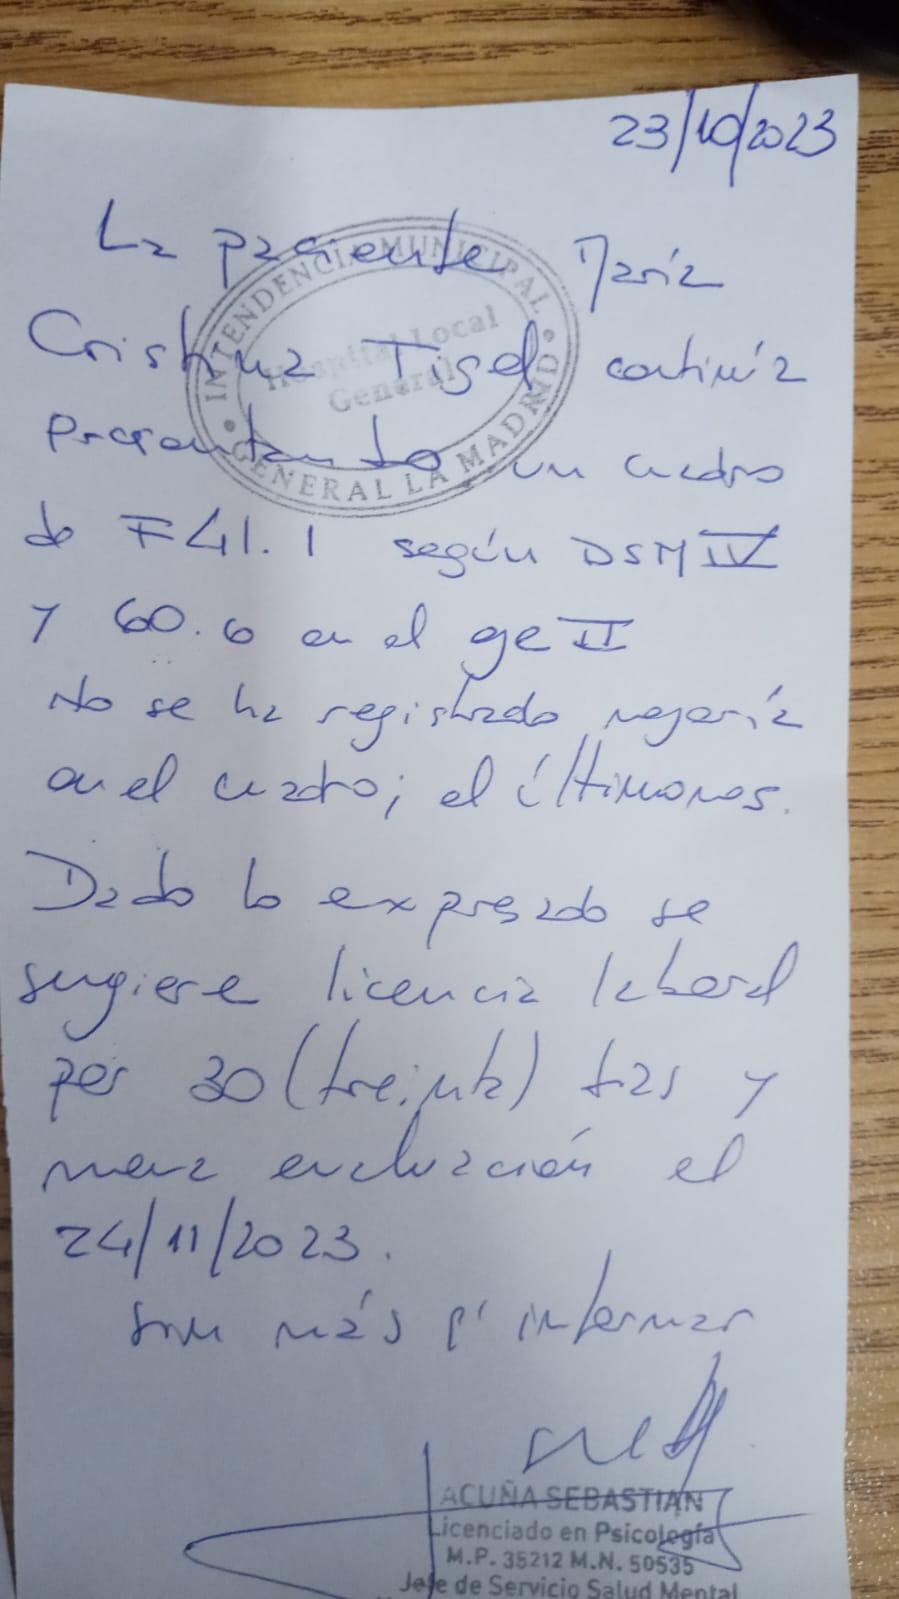 23/10/2023
La paciente María
Cristina Tigel continúa
presentando un cuadro
de F41.1 según DSM IV
y 60.6 en el eje II
No se ha registrado mejoría
en el cuadro; el último mes.
Dado lo expresado se
sugiere licencia laboral
por 30 (treinta) días y
nueva evaluación el
24/11/2023.
Sin más p' informar
INTENDENCIA MUNICIPAL
Hospital Local
General
GENERAL LA MADRID
ACUÑA SEBASTIAN
Licenciado en Psicología
M.P. 35212 M.N. 50535
Jefe de Servicio Salud Mental